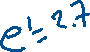 e¹=2.7